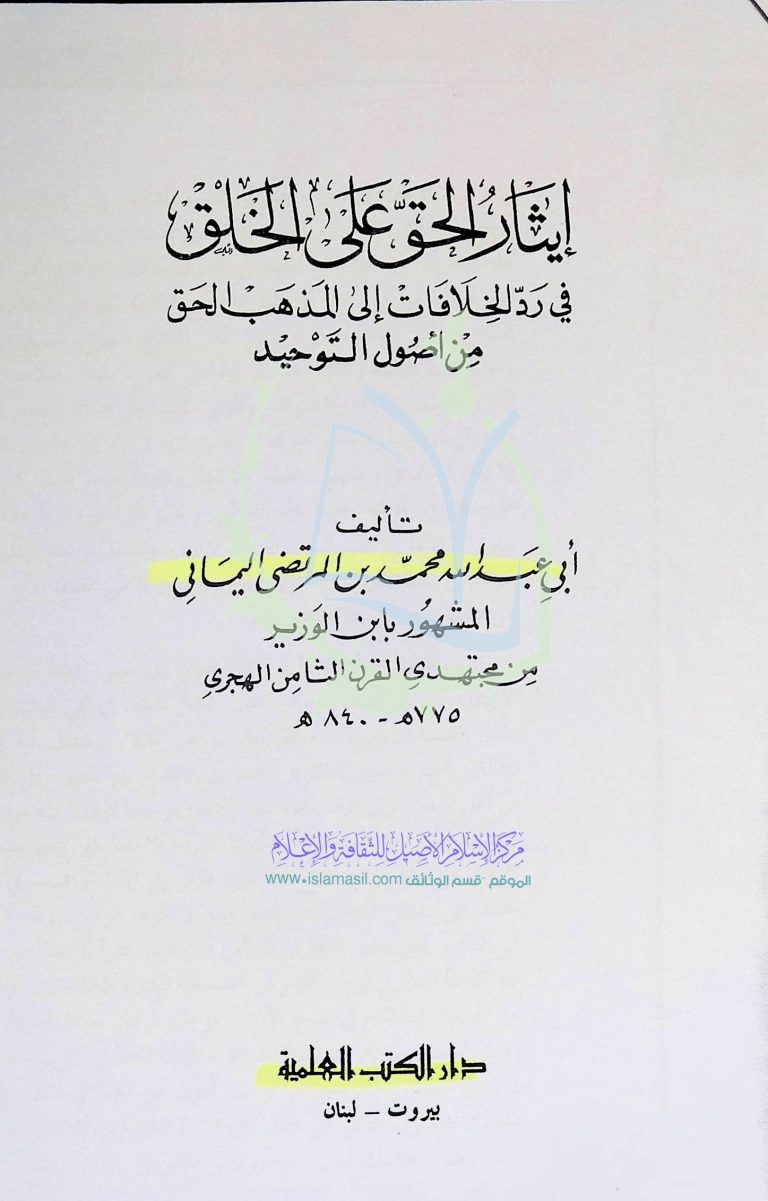 إيثارُ الحَقّ عَلَى الخَلْق
في رَدّ الخِلَافَات إلى المَذهَب الحَق
مِن أصُول التَّوْحيد
تأليف
أبي عَبد الله محمّد بن المرتضى اليَماني
المشهُور بابن الوَزير
مِن مجتهدي القرن الثامِن الهجري
٧٧٥هـ - ٨٤٠ هـ
مركز الإسلام الأصيل للثقافة والإعلام
الموقع - قسم الوثائق www.islamasil.com
دار الكتب العلمية
بيروت - لبنان